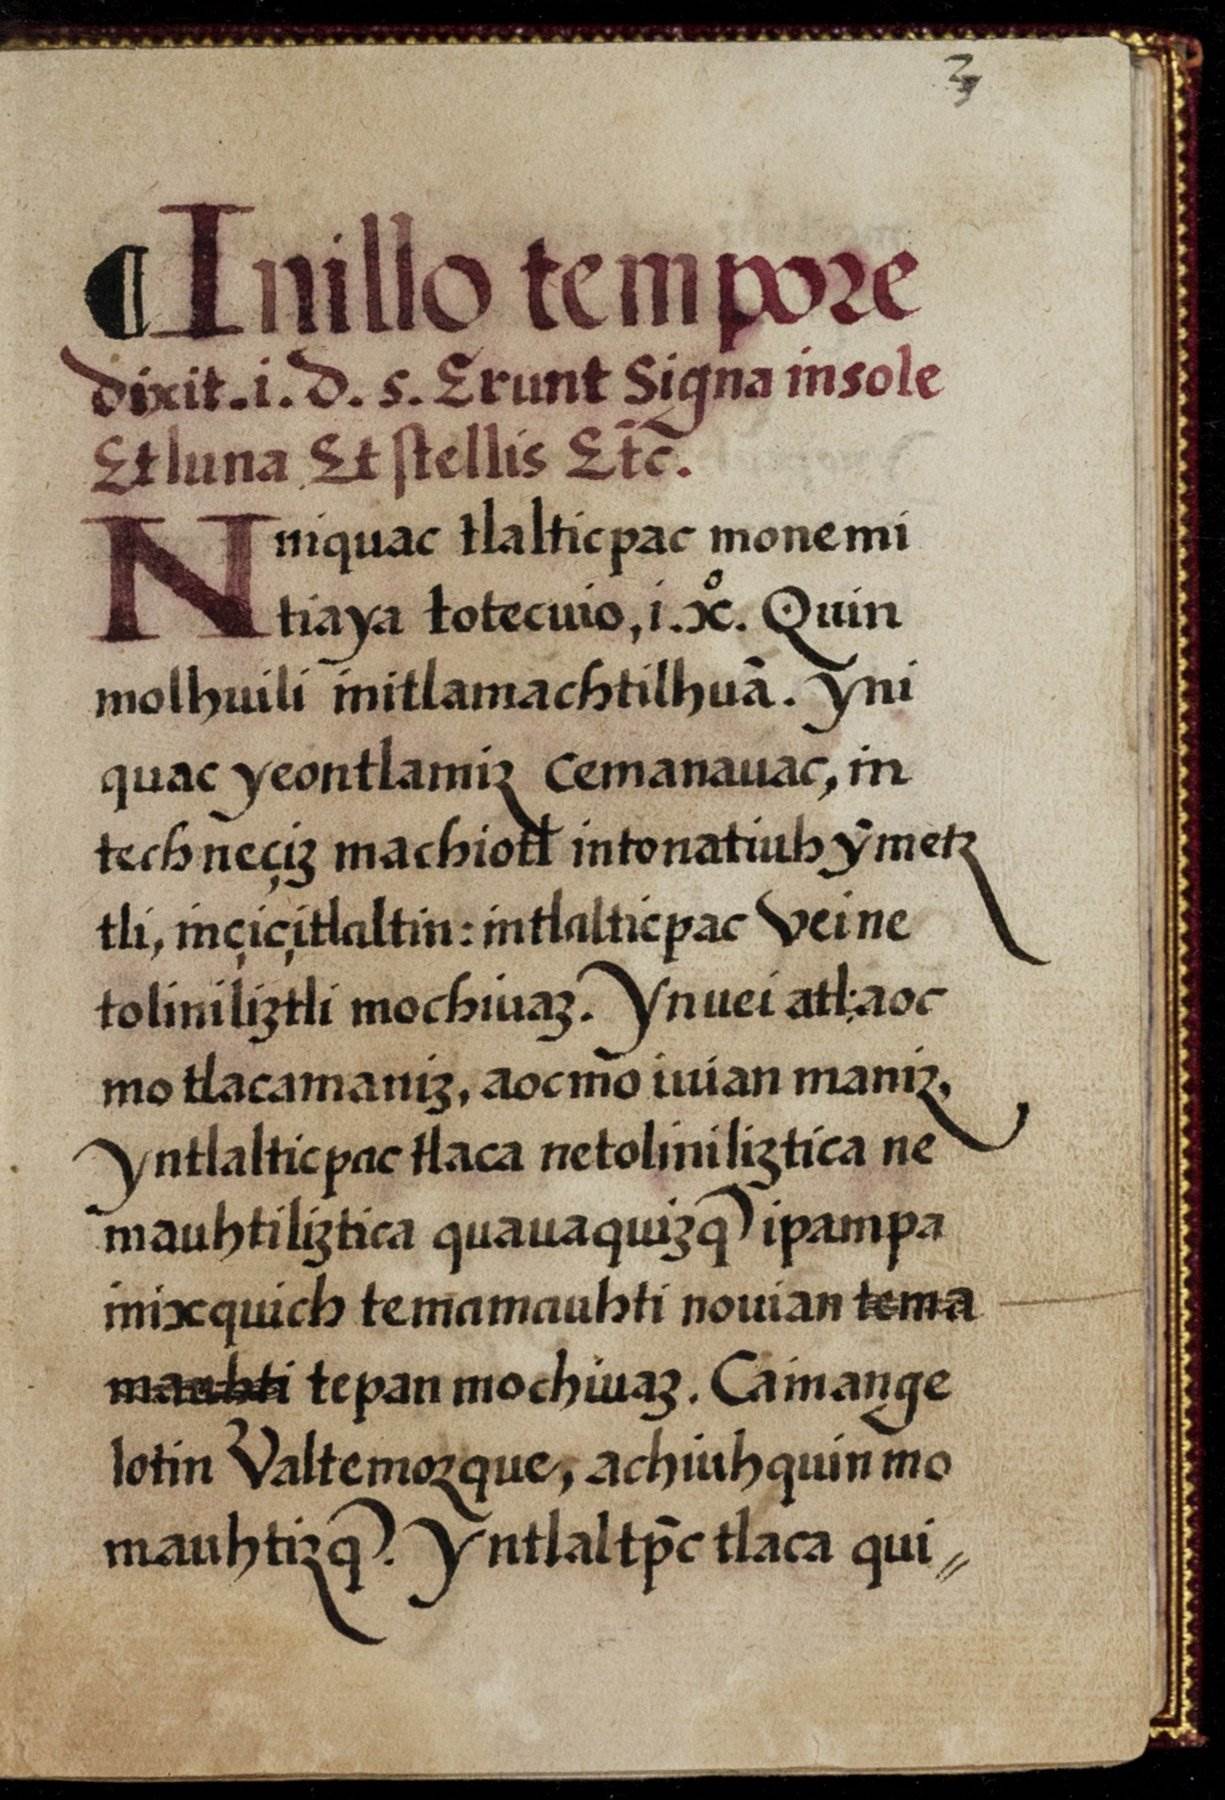 3
¶ Inillo tempore
dixit. i. d. s. Erunt Signa insole
Et luna Et stellis Et̃c̃.
Nniquac tlalticpac monemi
tiaya totecuio, i. xº. Quin
molhuili initlamachtilhuã. Yni
quac yeontlamiz cemanauac, in
tech neçiz machiotl intonatiuh ỹmetz
tli, inçiçitlaltin: intlalticpac Vei ne
toliniliztli mochiuaz. Ynuei atl: aoc
mo tlacamaniz, aocmo iuian maniz,
Yntlalticpac tlaca netoliniliztica ne
mauhtiliztica quauaquizq̃ ipampa
inixquich temamauhti nouian tema
mauhti tepan mochiuaz. Ca inange
lotin Valtemozque, achiuhquinmo
mauhtizq̃. Yntlaltp̃c tlaca qui〃